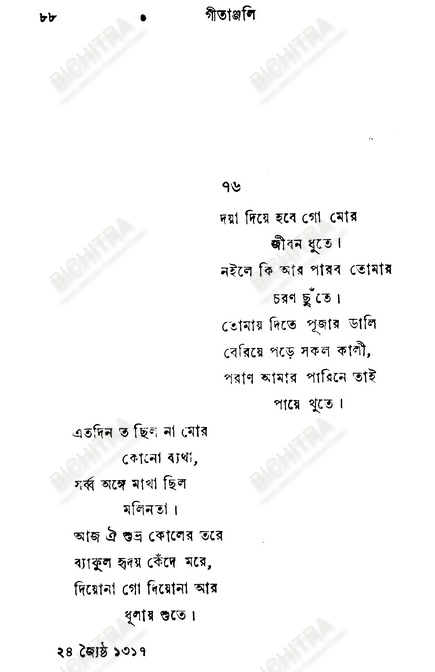 ৮৮ গীতাঞ্জলি
৭৬
দয়া দিয়ে হবে গো মোর
জীবন ধুতে।
নইলে কি আর পারব তোমার
চরণ ছুঁতে।
তোমায় দিতে পূজার ডালি
বেরিয়ে পড়ে সকল কালী,
পরাণ আমার পারিনে তাই
পায়ে থুতে।
এতদিন ত ছিল না মোর
কোনো ব্যথা,
সর্ব্ব অঙ্গে মাখা ছিল
মলিনতা।
আজ ঐ শুভ্র কোলের তরে
ব্যাকুল হৃদয় কেঁদে মরে,
দিয়োনা গো দিয়োনা আর
ধূলায় শুতে।
২৪ জ্যৈষ্ঠ ১৩১৭
BICHITRA
BICHITRA
BICHITRA
BICHITRA
BICHITRA
BICHITRA
BICHITRA
BICHITRA